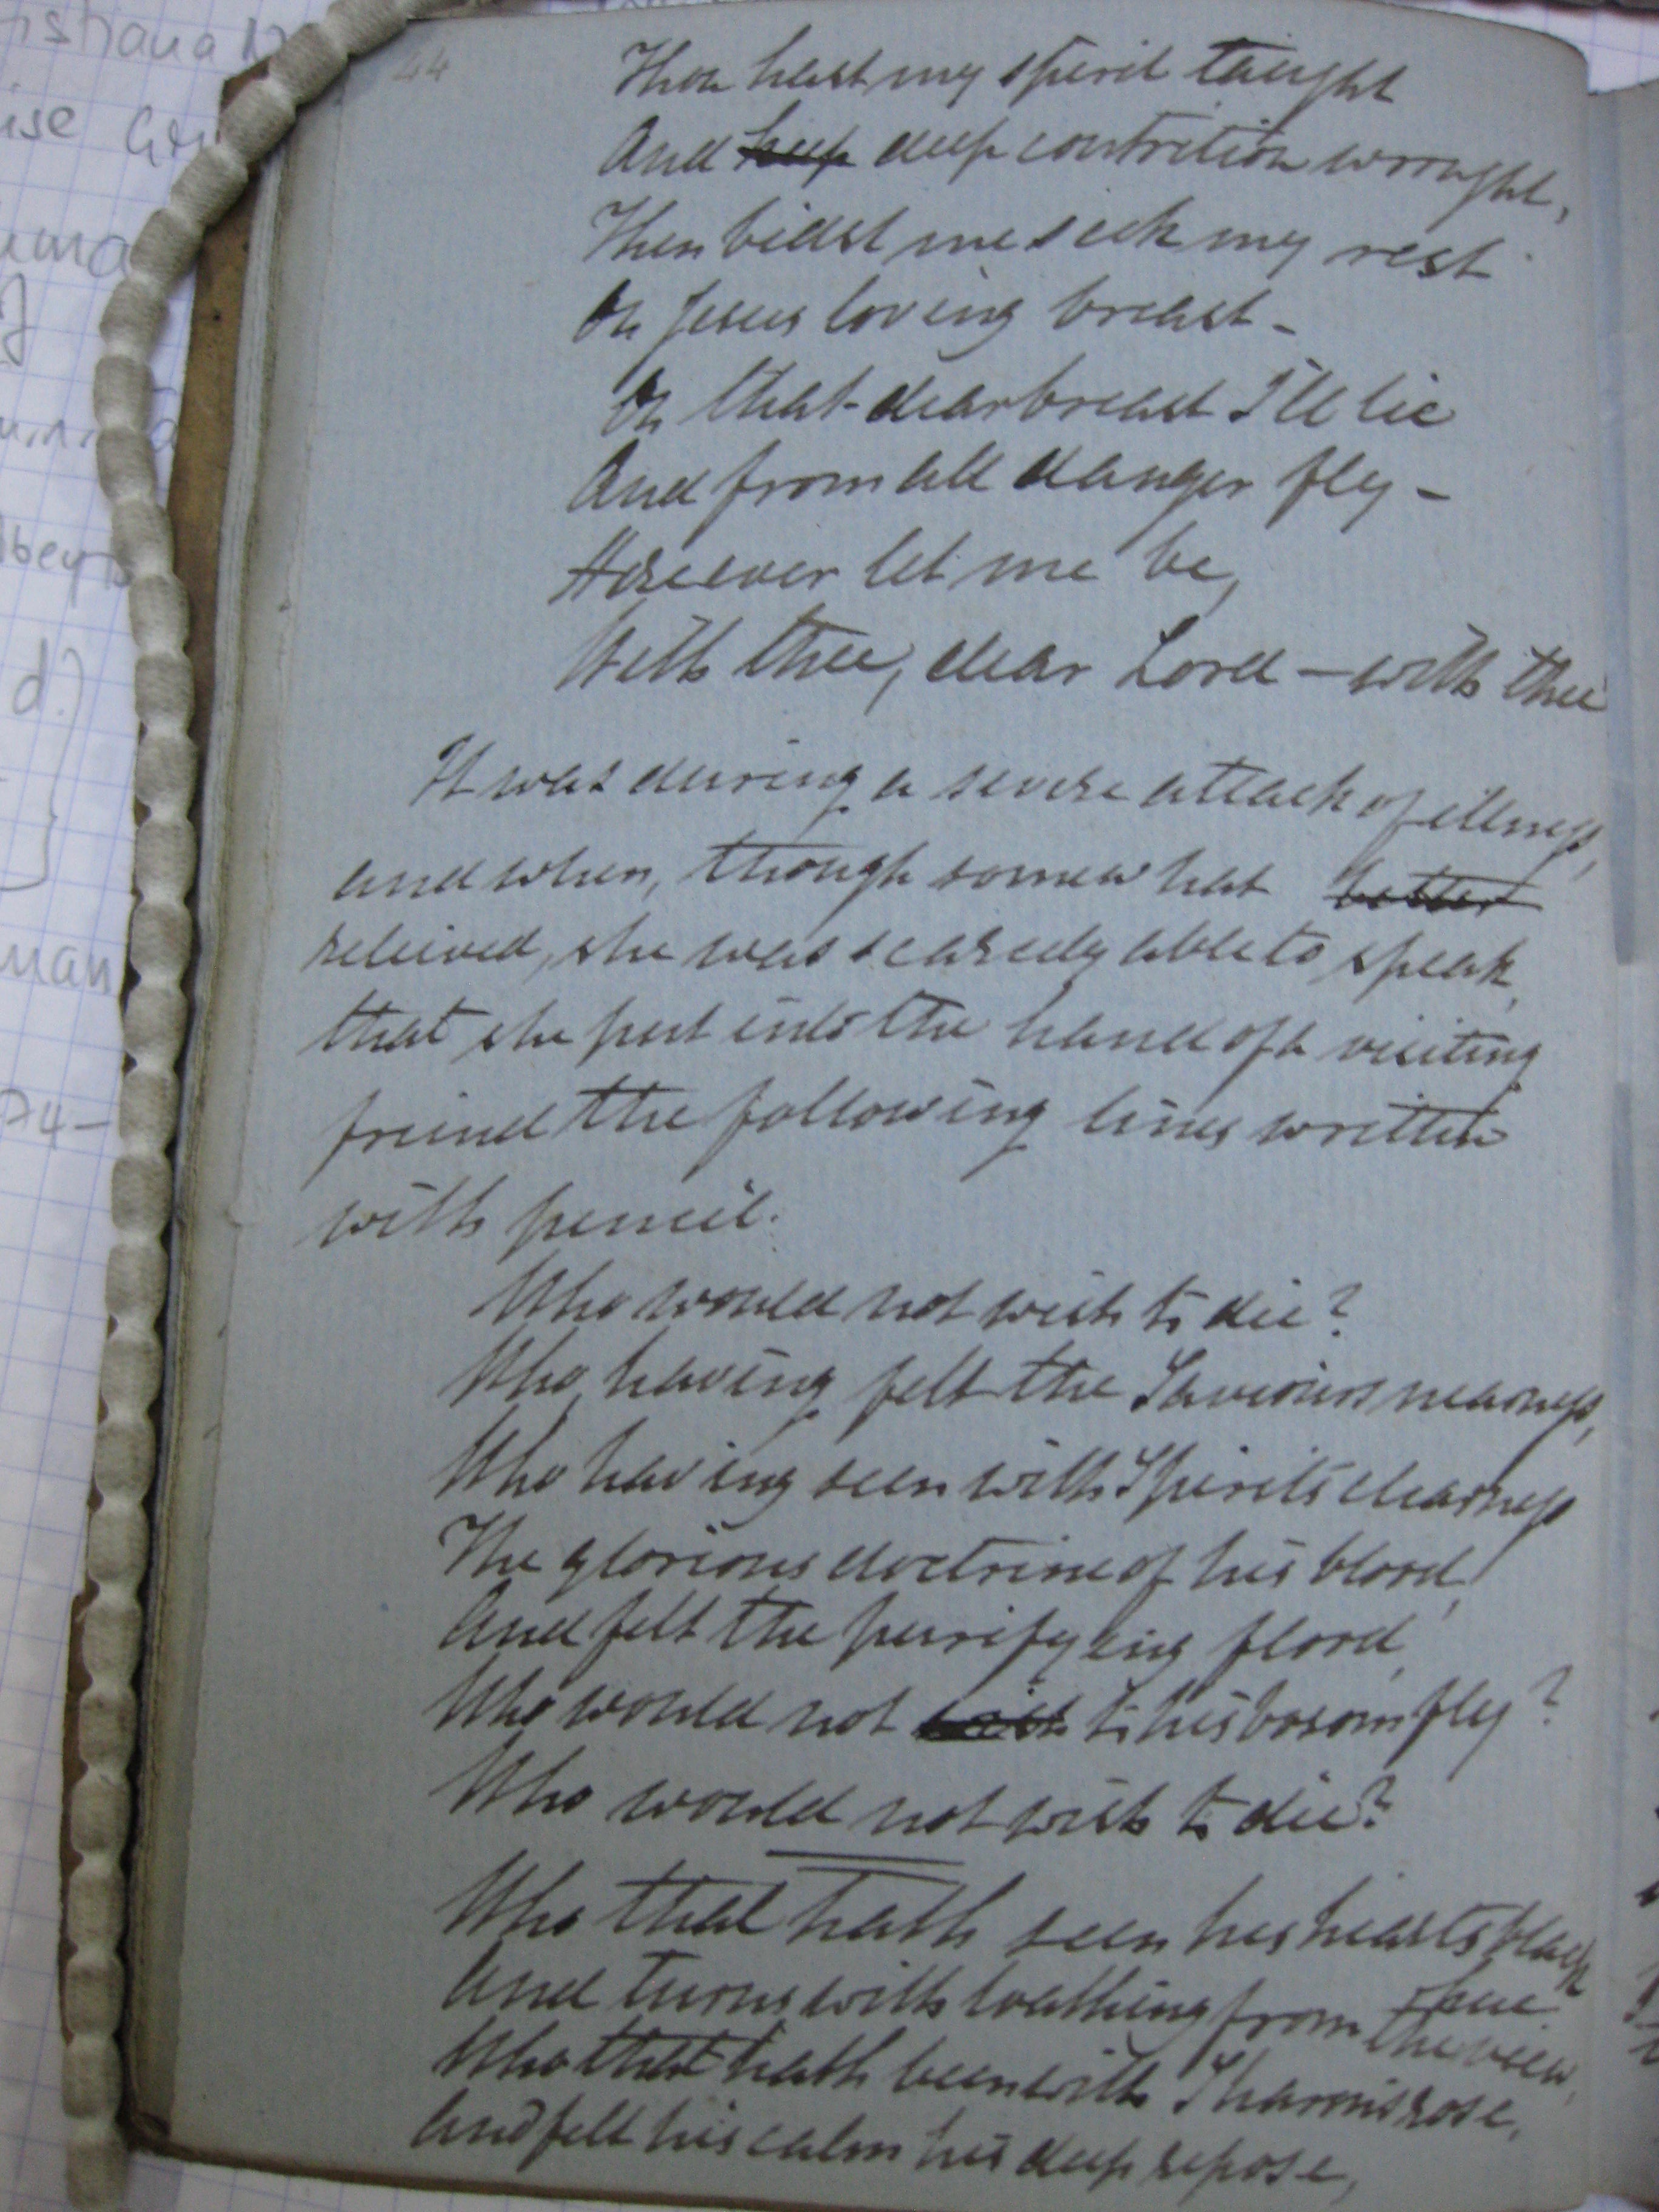 44
Thou hast my spirit taught
And keep deep contrition wrought,
Then bidst me seek my rest
On Jesus loving breast -
On that dear breast I'll lie
And from all danger fly -
Here ever let me be,
With thee, dear Lord - with thee
It was during a severe attack of illness,
and when, though somewhat better
releived, she was scarcely able to speak,
that she put into the hand of a visiting
freind the following lines written
with pencil.
Who would not wish to die?
Who, having felt the Saviours nearness,
Who having seen with Spirits clearness
The glorious doctrine of his blood,
And felt the purifying flood,
Who would not wish to his bosom fly?
Who would not wish to die?
Who that hath seen his hearts black
hue
And turns with loathing from the view,
Who that hath been with Sharons rose,
And felt his calm his deep repose,